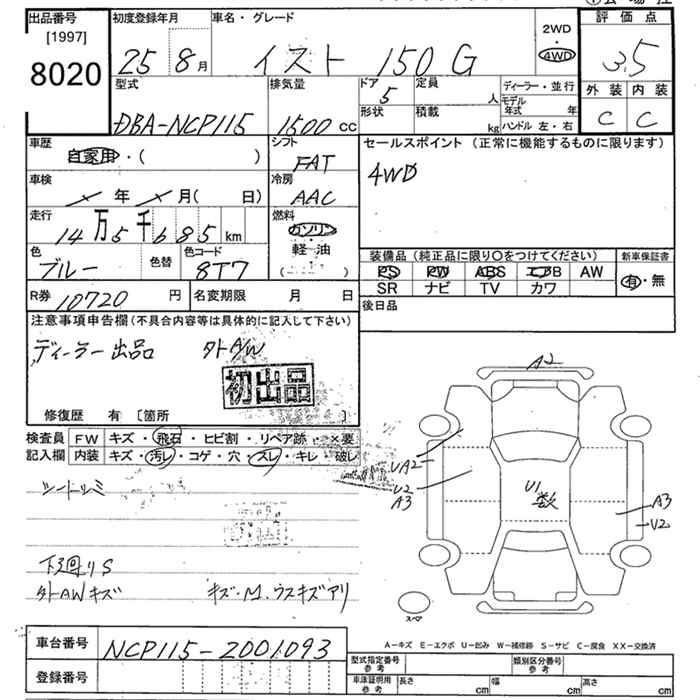 出品番号 初度登録年月 車名・グレード 2WD 評価点
[1997] 25 8月 イスト 150 G 4WD 3.5
8020 型式 排気量 ドア 定員 ディーラー・並行 外装 内装
DBA-NCP115 1500 cc 5 人 モデル年式 年 C C
形状 積載 kg ハンドル 左・右
車歴 自家用・( ) シフト FAT セールスポイント (正常に機能するものに限ります)
車検 年 月( 日) 冷房 AAC 4WD
走行 14万5千685 km 燃料 ガソリン
軽・油
色 ブルー 色替 色コード 8T7 ( )
装備品 (純正品に限り〇をつけてください) 新車保証書
PS PW ABS エアB AW 有・無
SR ナビ TV カワ
R券 10720 円 名変期限 月 日 後日品
注意事項申告欄 (不具合内容等は具体的に記入して下さい)
ディーラー出品 外A/W
初出品
修復歴 有 [箇所 ]
検査員 FW キズ・飛石・ヒビ割・リペア跡・×要
記入欄 内装 キズ・汚レ・コゲ・穴・スレ・キレ・破レ
シートシミ
下廻りS
外AWキズ キズ・M.ウスキズアリ
A2
UA2
U2
A3
U1
数
A3
U2
スペア
A-キズ E-エクボ U-凹み W-補修跡 S-サビ C-腐食 XX-交換済
車台番号 NCP115-2001093
登録番号
型式指定番号 参考 類別区分番号 参考
車庫証明用 参考 長さ cm 幅 cm 高さ cm